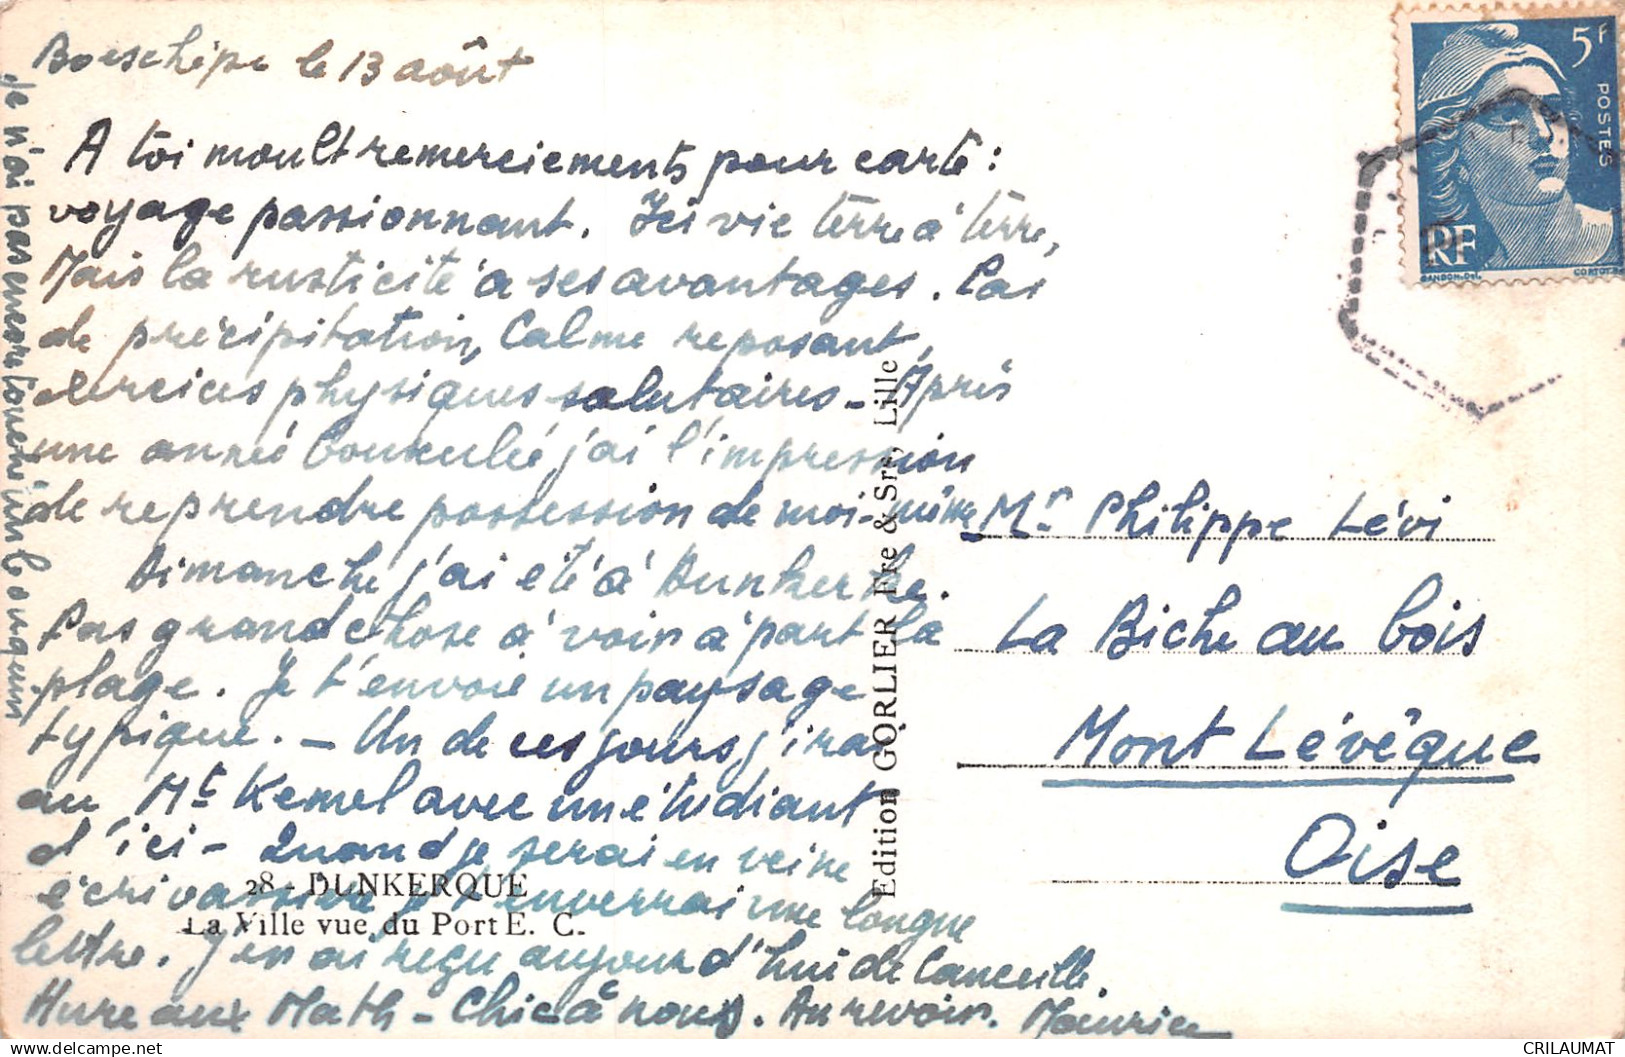 Boeschèpe le 13 août
A toi moult remerciements pour carte :
voyage passionnant. Ici vie terre à terre,
Mais la rusticité a ses avantages. Pas
de précipitation, Calme reposant,
exercices physiques salutaires - Après
une année bousculée j'ai l'impression
de reprendre possession de moi-même
Dimanche j'ai été à Dunkerke.
Pas grand chose à voir à part la
plage. Je t'envoie un paysage
typique. - Un de ces jours j'irai
au Mt Kemel avec un étudiant
d'ici - Quand je serai en veine
écrivassive je t'enverrai une longue
lettre. J'en ai reçu aujourd'hui de
Hure aux Math - Chic à nous. Au revoir. Maurice
Je n'ai pas encore touché un bouquin
28 - DUNKERQUE
La Ville vue du Port E. C.
Edition GORLIER Fre & Sr, Lille
Mr. Philippe Lévi
La Biche au bois
Mont Lévêque
Oise
5F
POSTES
RF
GANDON-Del.
CRILAUMAT